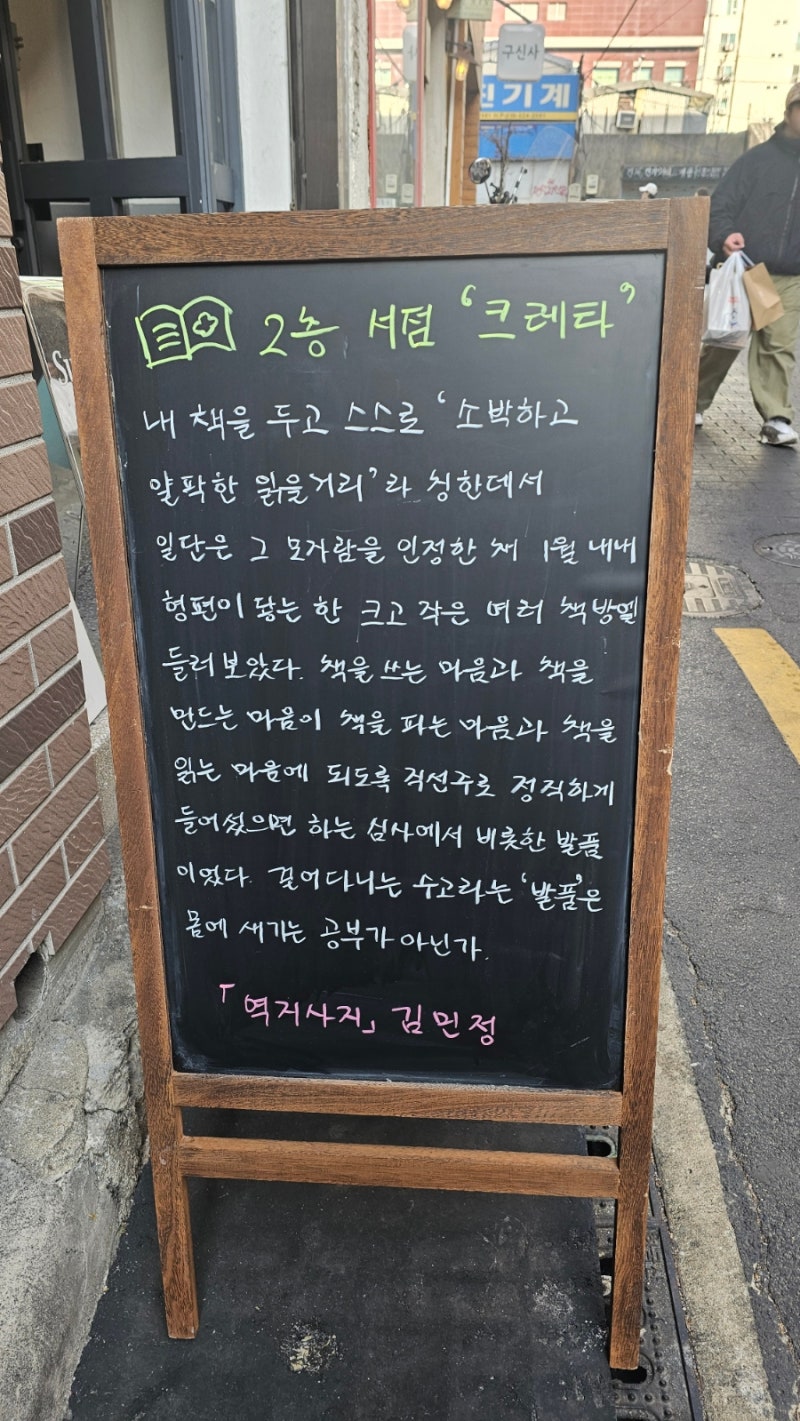 구신사
진기계
2층 서점 '크레타'
내 책을 두고 스스로 '소박하고
얄팍한 읽을거리'라 칭한데서
일단은 그 모자람을 인정한 채 1월 내내
형편이 닿는 한 크고 작은 여러 책방엘
들러 보았다. 책을 쓰는 마음과 책을
만드는 마음이 책을 파는 마음과 책을
읽는 마음에 되도록 직선주로 정직하게
들어섰으면 하는 심사에서 비롯한 발품
이었다. 걸어다니는 수고라는 '발품'은
몸에 새기는 공부가 아닌가.
「역지사지」 김민정